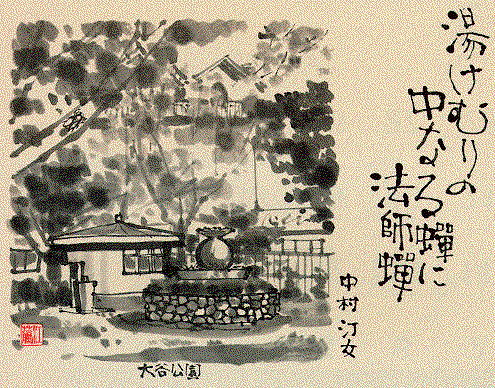 湯けむりの
中なる蟬に
法師蟬
中村汀女
大谷公園